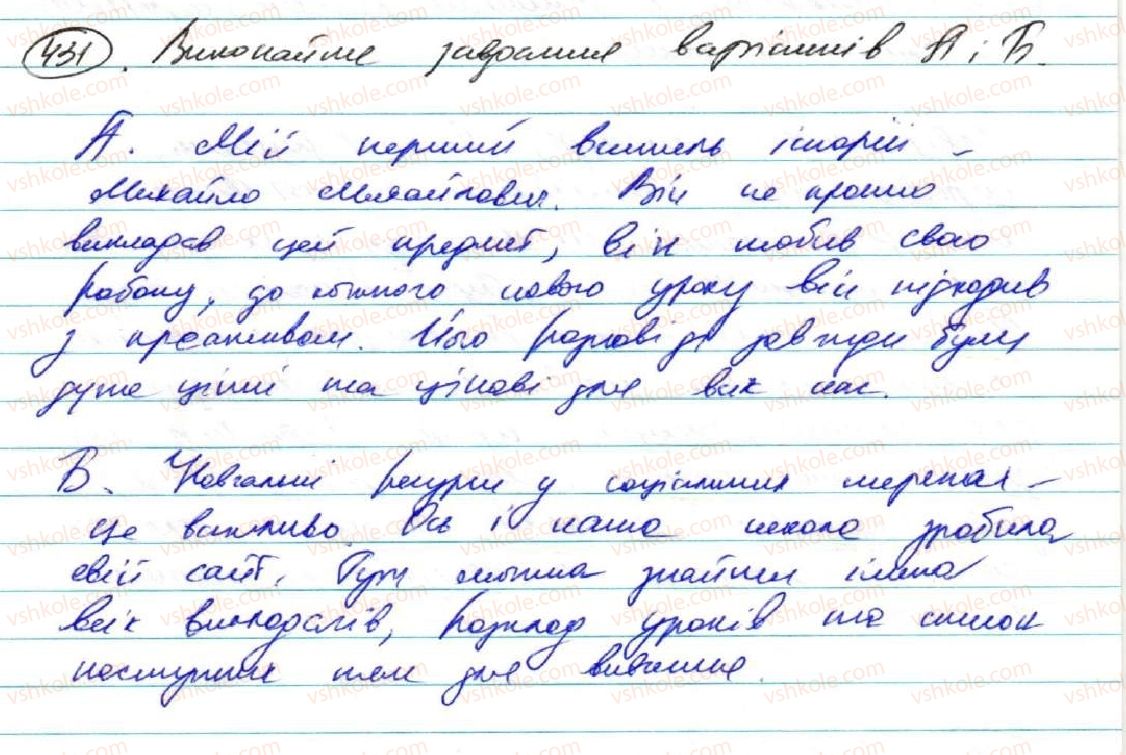 431. Виконайте завдання варіантів А і Б.
А. Мій перший вчитель історії –
Михайло Михайлович. Він не просто
викладав цей предмет, він любив свою
роботу, до кожного нового уроку він підходив
з креативом. Його розповіді завжди були
дуже цінні та цікаві для всіх нас.
Б. Навчальні ресурси у соціальних мережах –
це важливо. Ось і наша школа зробила
свій сайт. Тут можна знайти імена
всіх викладачів, розклад уроків та список
наступних тем для вивчення.